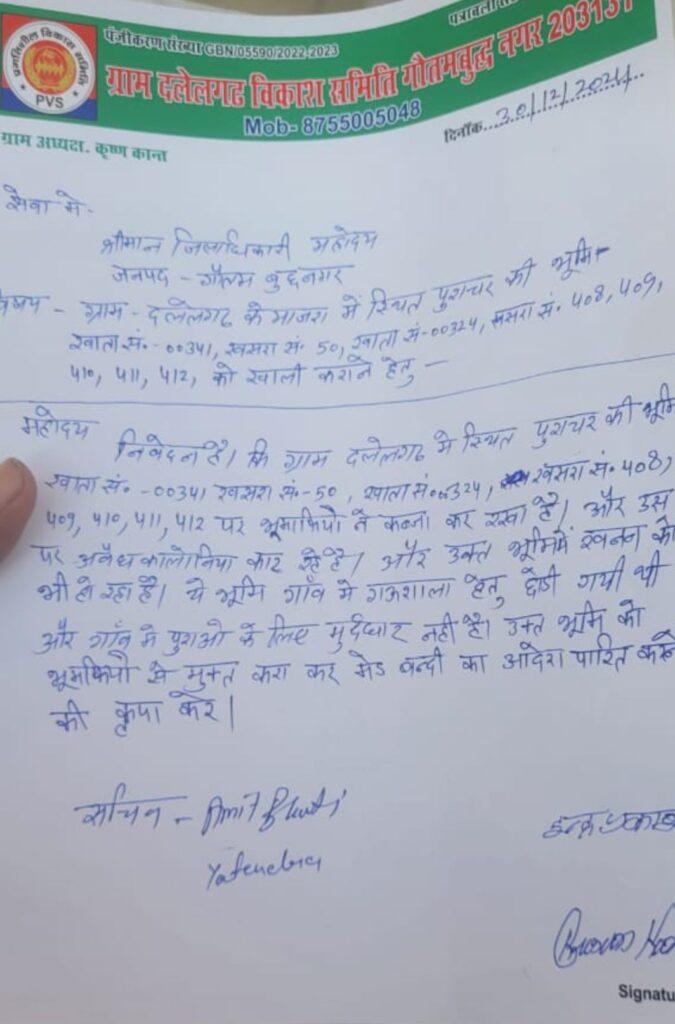 पत्रावली
पंजीकरण संख्या GBN/05590/2022-2023
ग्राम दलेलगढ विकाश समिति गौतमबुद्ध नगर 203131
Mob- 8755005048
प्रगतिशील विकास समिति
PVS
ग्राम अध्यक्ष. कृष्ण कान्त
दिनाँक...30/12/2024..
सेवा मे-
श्रीमान जिलाधिकारी महोदय
जनपद - गौतम बुद्धनगर
विषय - ग्राम - दलेलगढ के माजरा में स्थित पशुचर की भूमि
खाता सं.-00341, खसरा सं. 50, खाता सं-00324, खसरा सं. 408, 409,
410, 411, 412, को खाली कराने हेतु -
महोदय
निवेदन है। कि ग्राम दलेलगढ मे स्थित पशुचर की भूमि
खाता सं. -00341 खसरा सं-50, खाता सं.00324, खसरा सं. 408,
409, 410, 411, 412 पर भूमाफियो ने कब्जा कर रखा है। और उस
पर अवैध कालोनिया काट रहे है। और उक्त भूमिमें खनन का
भी हो रहा है। ये भूमि गाँव मे गऊशाला हेतु छोडी गयी थी
और गाँव मे पशुओ के लिए नही है। उक्त भूमि को
भूमाफियो से मुक्त करा कर मेड बन्दी का आदेश पारित करने
की कृपा करे।
सचिव - Amit Bhati
Yatendra
Signatu